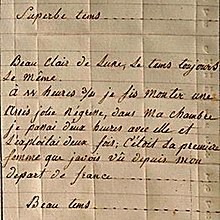 Superbe tems
Beau Clair de Lune, Le tems toujours
Le même.
à heures Je fis monter une
très jolie Négresse, dans ma Chambre
je passai deux heures avec elle et
L'exploitai deux fois; C'étoit La première
femme que j'avois vü depuis mon
depart de france
Beau tems